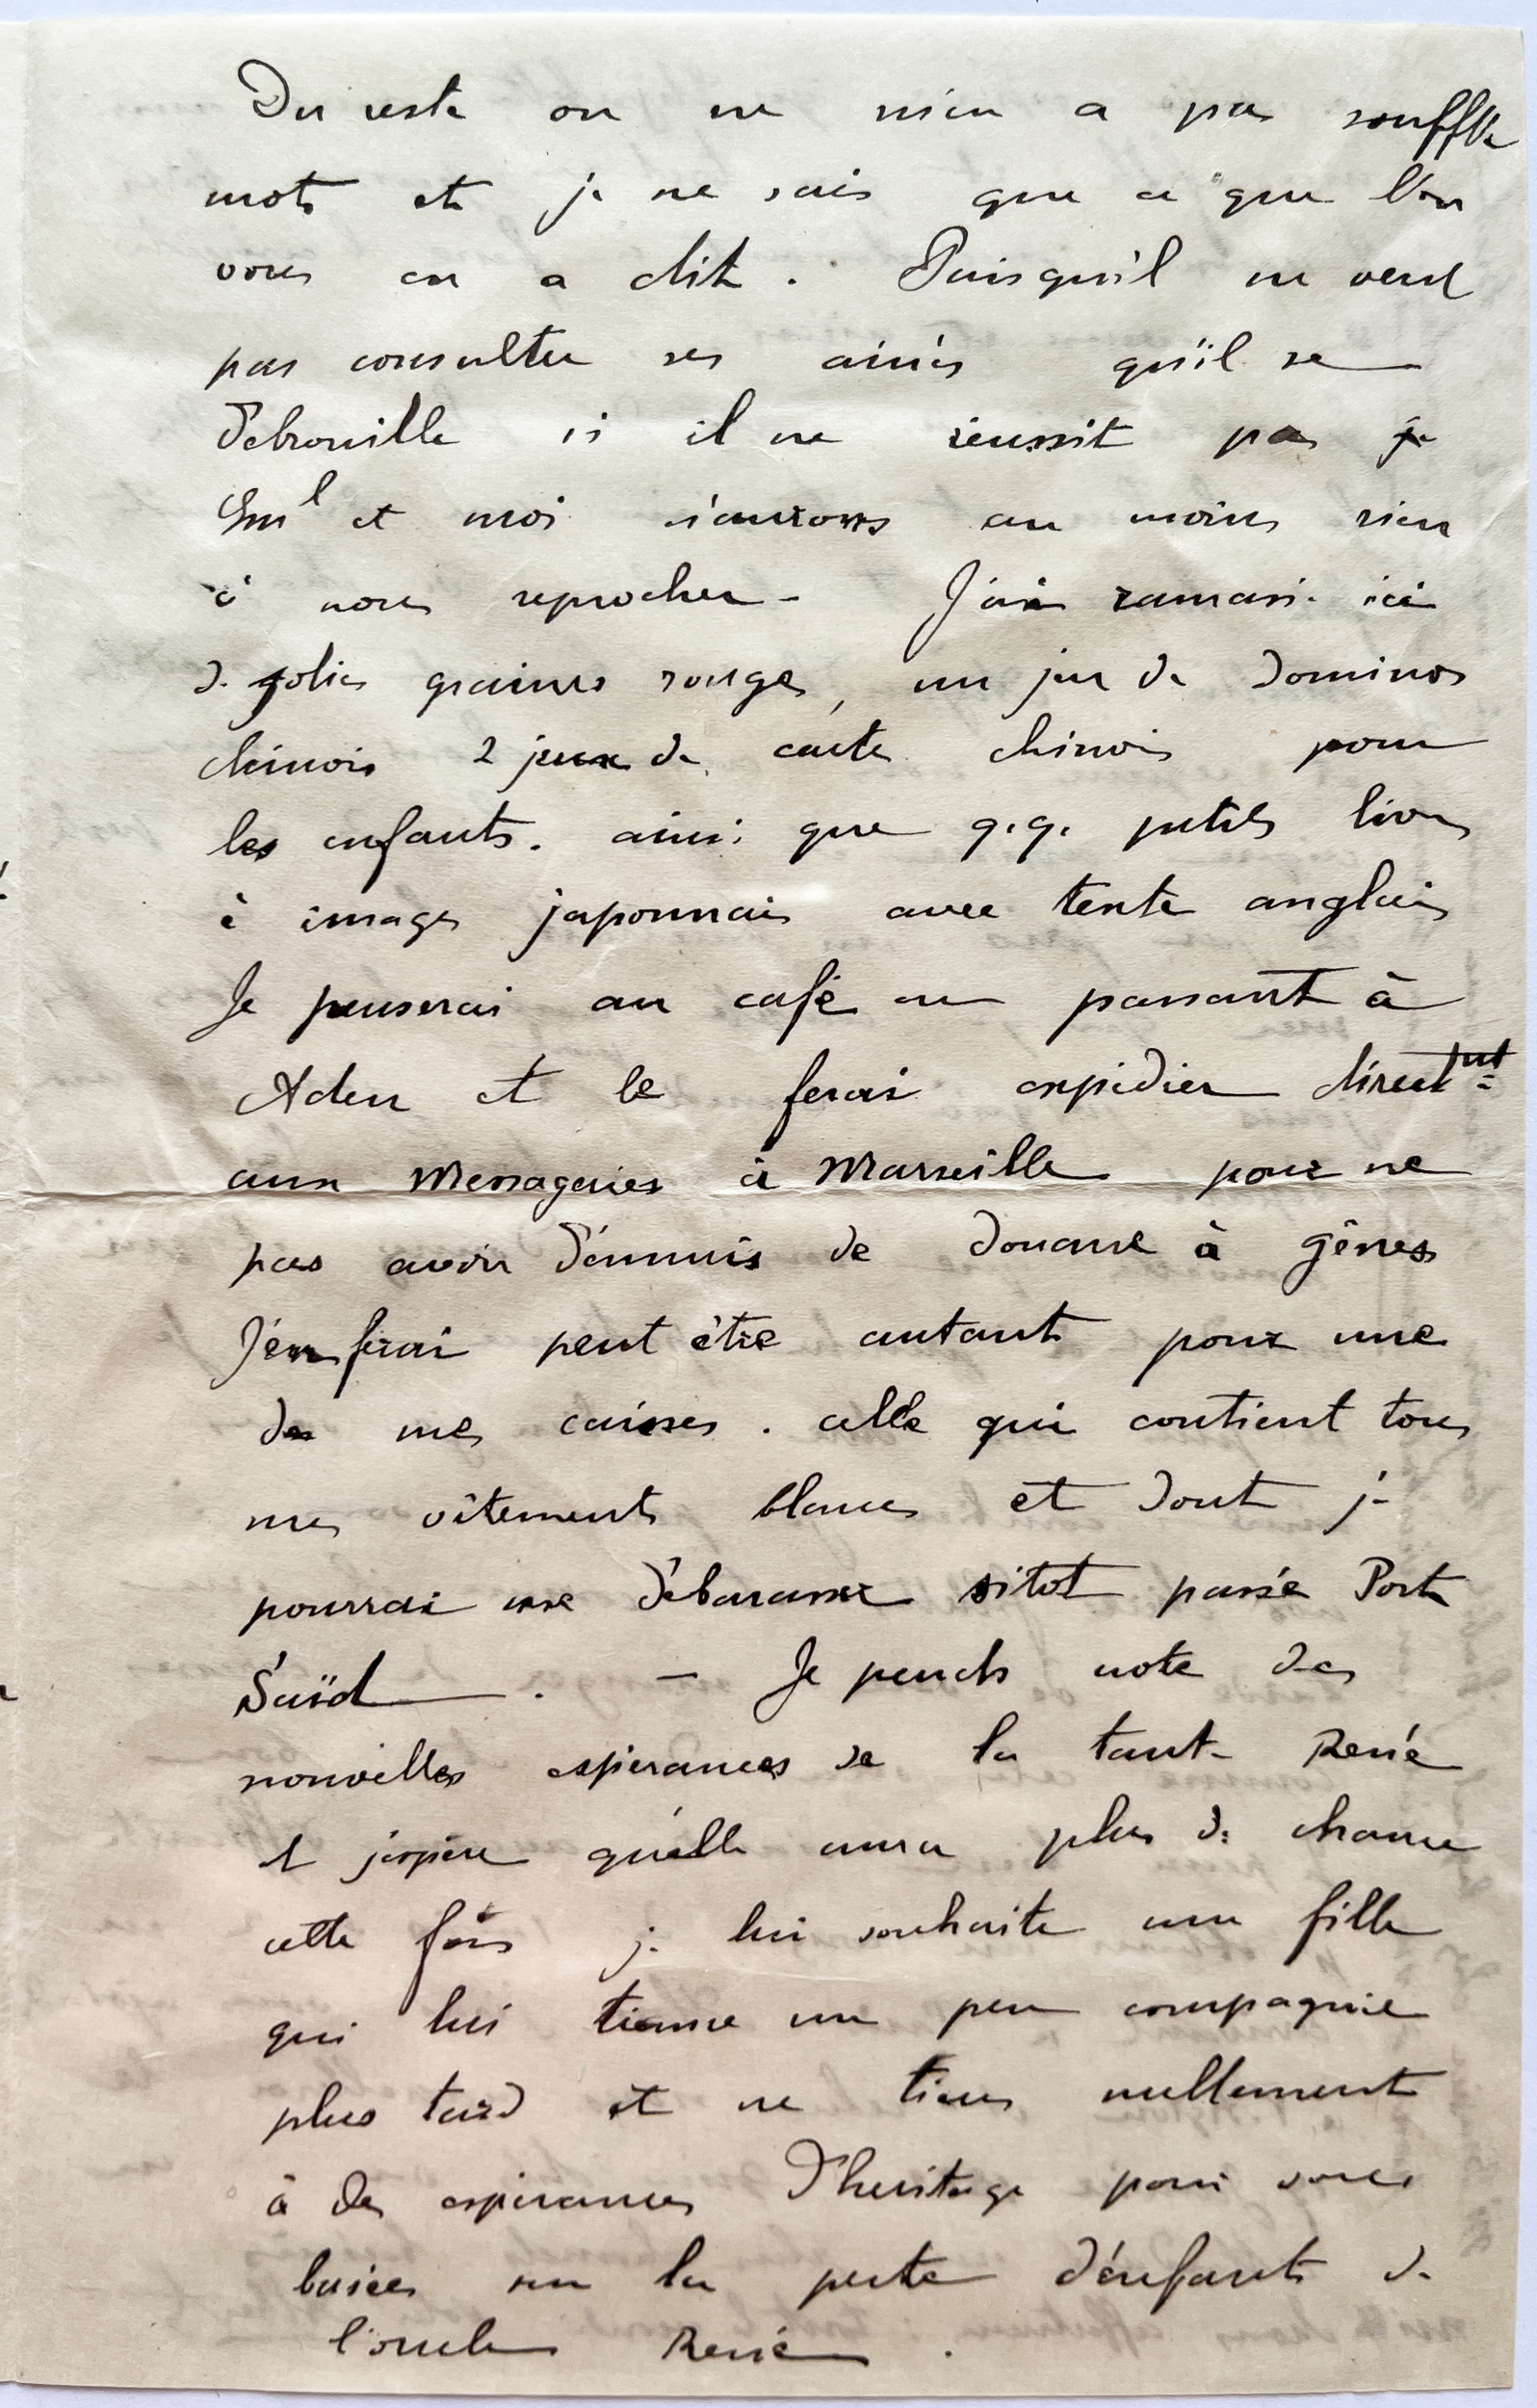 Du reste on ne m'en a pas soufflé
mot et je ne sais que ce que l'on
vous en a dit. Puisqu'il ne veut
pas consulter ses ainés qu'il se
debrouille si il ne reussit pas je
Em^l et moi n'aurons au moins rien
à nous reprocher - J'ai ramassé ici
de jolies graines rouges, un jeu de dominos
chinois 2 jeux de carte chinois pour
les enfants. ainsi que q.q. petits livres
à images japonnais avec texte anglais
Je penserai au café en passant à
Aden et le ferai expédier direct^mt
aux Messageries à Marseille pour ne
pas avoir d'ennuis de douane à Gênes
J'en ferai peut être autant pour une
de mes caisses. celle qui contient tous
mes vêtements blancs et dont je
pourrai me débarasser sitot passé Port
Saïd. - Je prends note des
nouvelles espérances de la tante René
et j'espère qu'elle aura plus de chance
cette fois je lui souhaite une fille
qui lui tienne un peu compagnie
plus tard et ne tiens nullement
à des espérances d'heritage pour vous
basées sur la perte d'enfants de
l'oncle René.